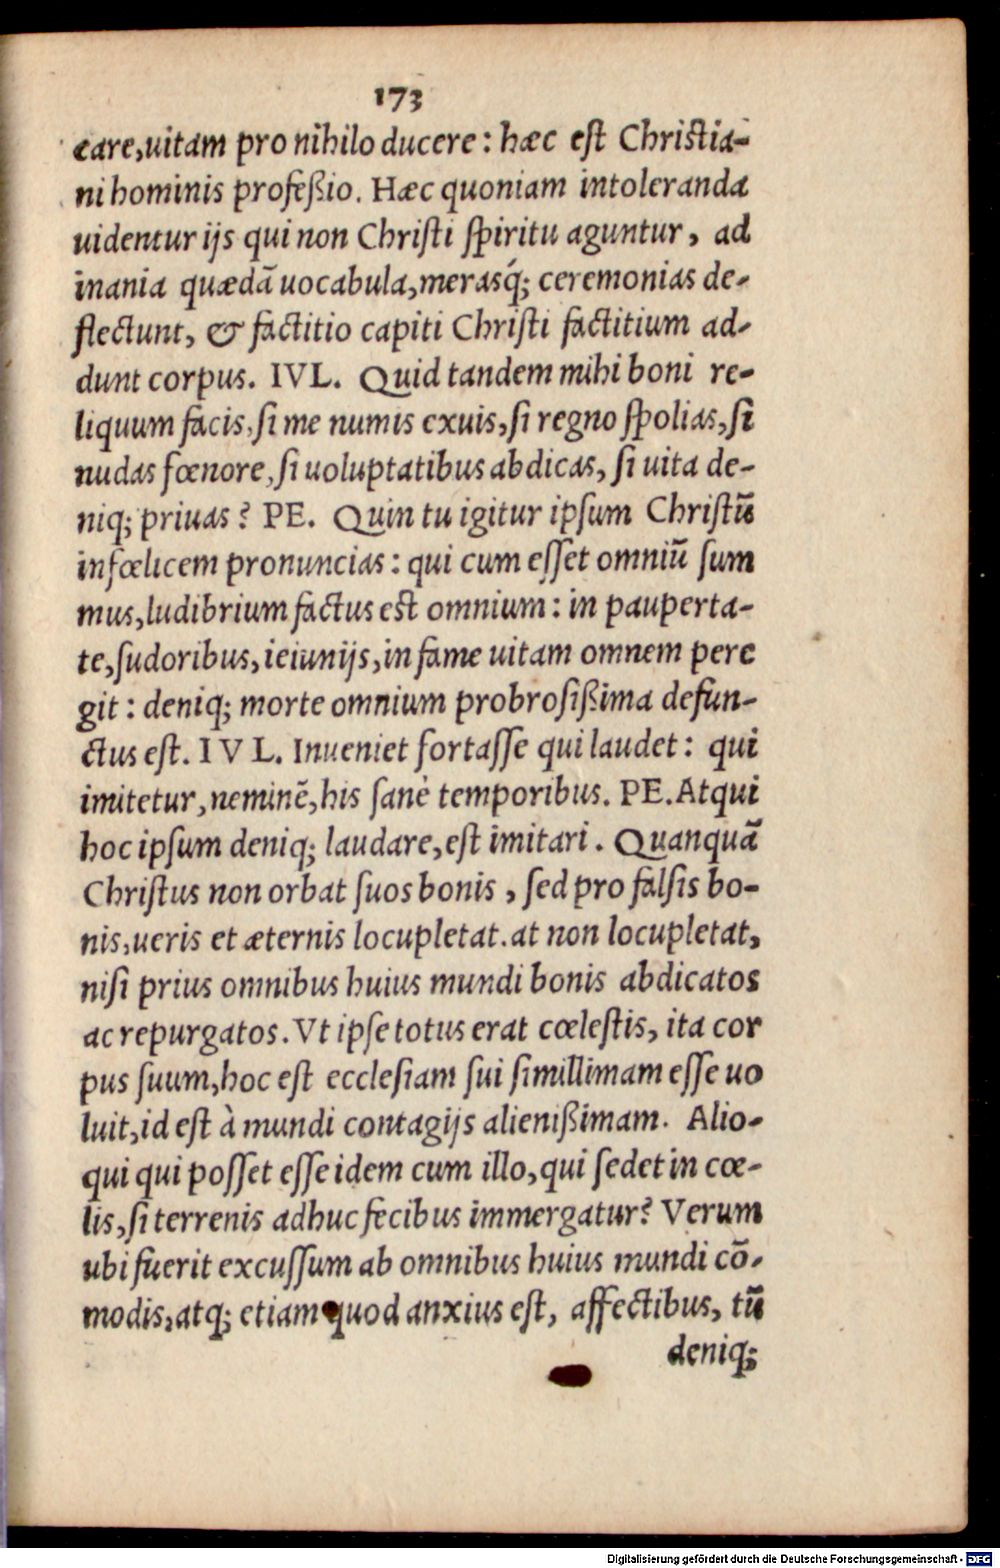 173
care,uitam pro nihilo ducere: hæc est Christia-
ni hominis profeßio. Hæc quoniam intoleranda
uidentur ijs qui non Christi spiritu aguntur, ad
inania quædã uocabula,merasq́; ceremonias de-
flectunt, & factitio capiti Christi factitium ad-
dunt corpus. IVL. Quid tandem mihi boni re-
liquum facis,si me numis exuis,si regno spolias,si
nudas fœnore,si uoluptatibus abdicas, si uita de-
niq; priuas? PE. Quin tu igitur ipsum Christũ
infœlicem pronuncias: qui cum esset omniũ sum
mus,ludibrium factus est omnium: in pauperta-
te,sudoribus,ieiunijs,in fame uitam omnem pere
git: deniq; morte omnium probrosißima defun-
ctus est. IVL. Inueniet fortasse qui laudet: qui
imitetur,neminẽ,his sanè temporibus. PE.Atqui
hoc ipsum deniq; laudare,est imitari. Quanquã
Christus non orbat suos bonis, sed pro falsis bo-
nis,ueris et æternis locupletat.at non locupletat,
nisi prius omnibus huius mundi bonis abdicatos
ac repurgatos.Vt ipse totus erat cœlestis, ita cor
pus suum,hoc est ecclesiam sui simillimam esse uo
luit,id est à mundi contagijs alienißimam. Alio-
qui qui posset esse idem cum illo,qui sedet in cœ-
lis,si terrenis adhuc fecibus immergatur? Verum
ubi fuerit excussum ab omnibus huius mundi cõ-
modis,atq; etiam quod anxius est, affectibus, tũ
deniq;
Digitalisierung gefördert durch die Deutsche Forschungsgemeinschaft - DFG